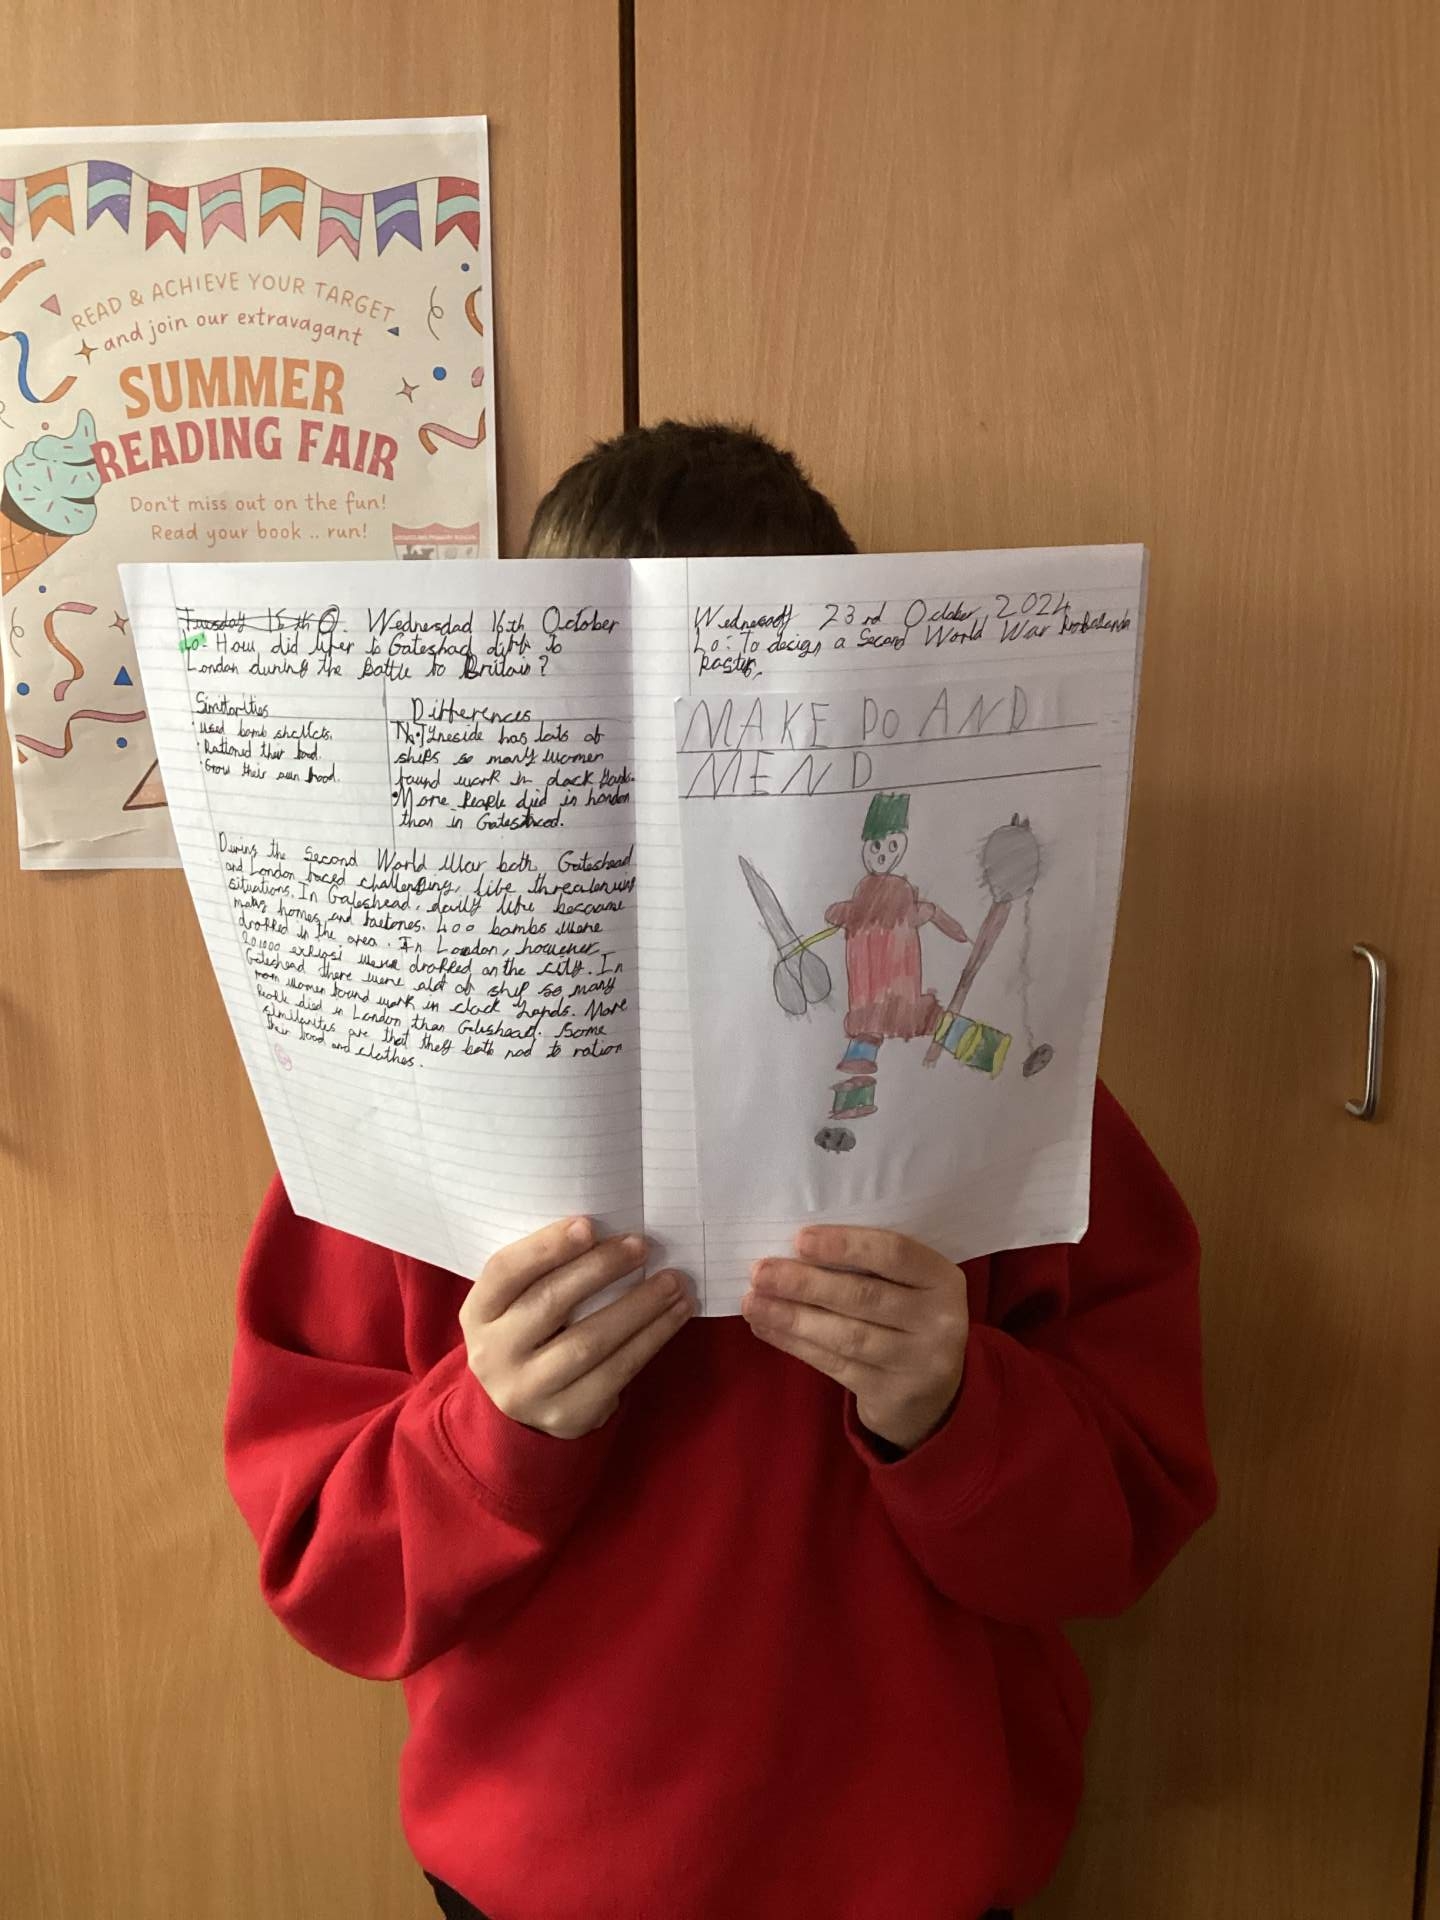 READ & ACHIEVE YOUR TARGET
and join our extravagant
SUMMER
READING FAIR
Don't miss out on the fun!
Read your book .. run!
Tuesday 15th O. Wednesdad 16th October
Lo: How did lifer to Gateshad diffr to
London during the Battle to Britain?
Similarities
• used bomb shelters.
• Rationed their food.
• Grow their own food.
Differences
• Tyneside has lots of
ships so many women
found work in dock Yards.
• More People died in London
than in Gateshead.
During the Second World War both Gateshead
and London faced challenging, life threatening
situations. In Gateshead, daily life became
homes and 400 bombs were
dropped in the area. In London, however
20,000 were dropped on the city. In
Gateshead there were alot of ship so many
women found work in dock Yards. More
People died in London than Gateshead. Some
similarites are that they both had to ration
their food and clothes.
Wednesday 23rd October 2024
Lo: To design a Second World War
Poster.
MAKE DO AND
MEND